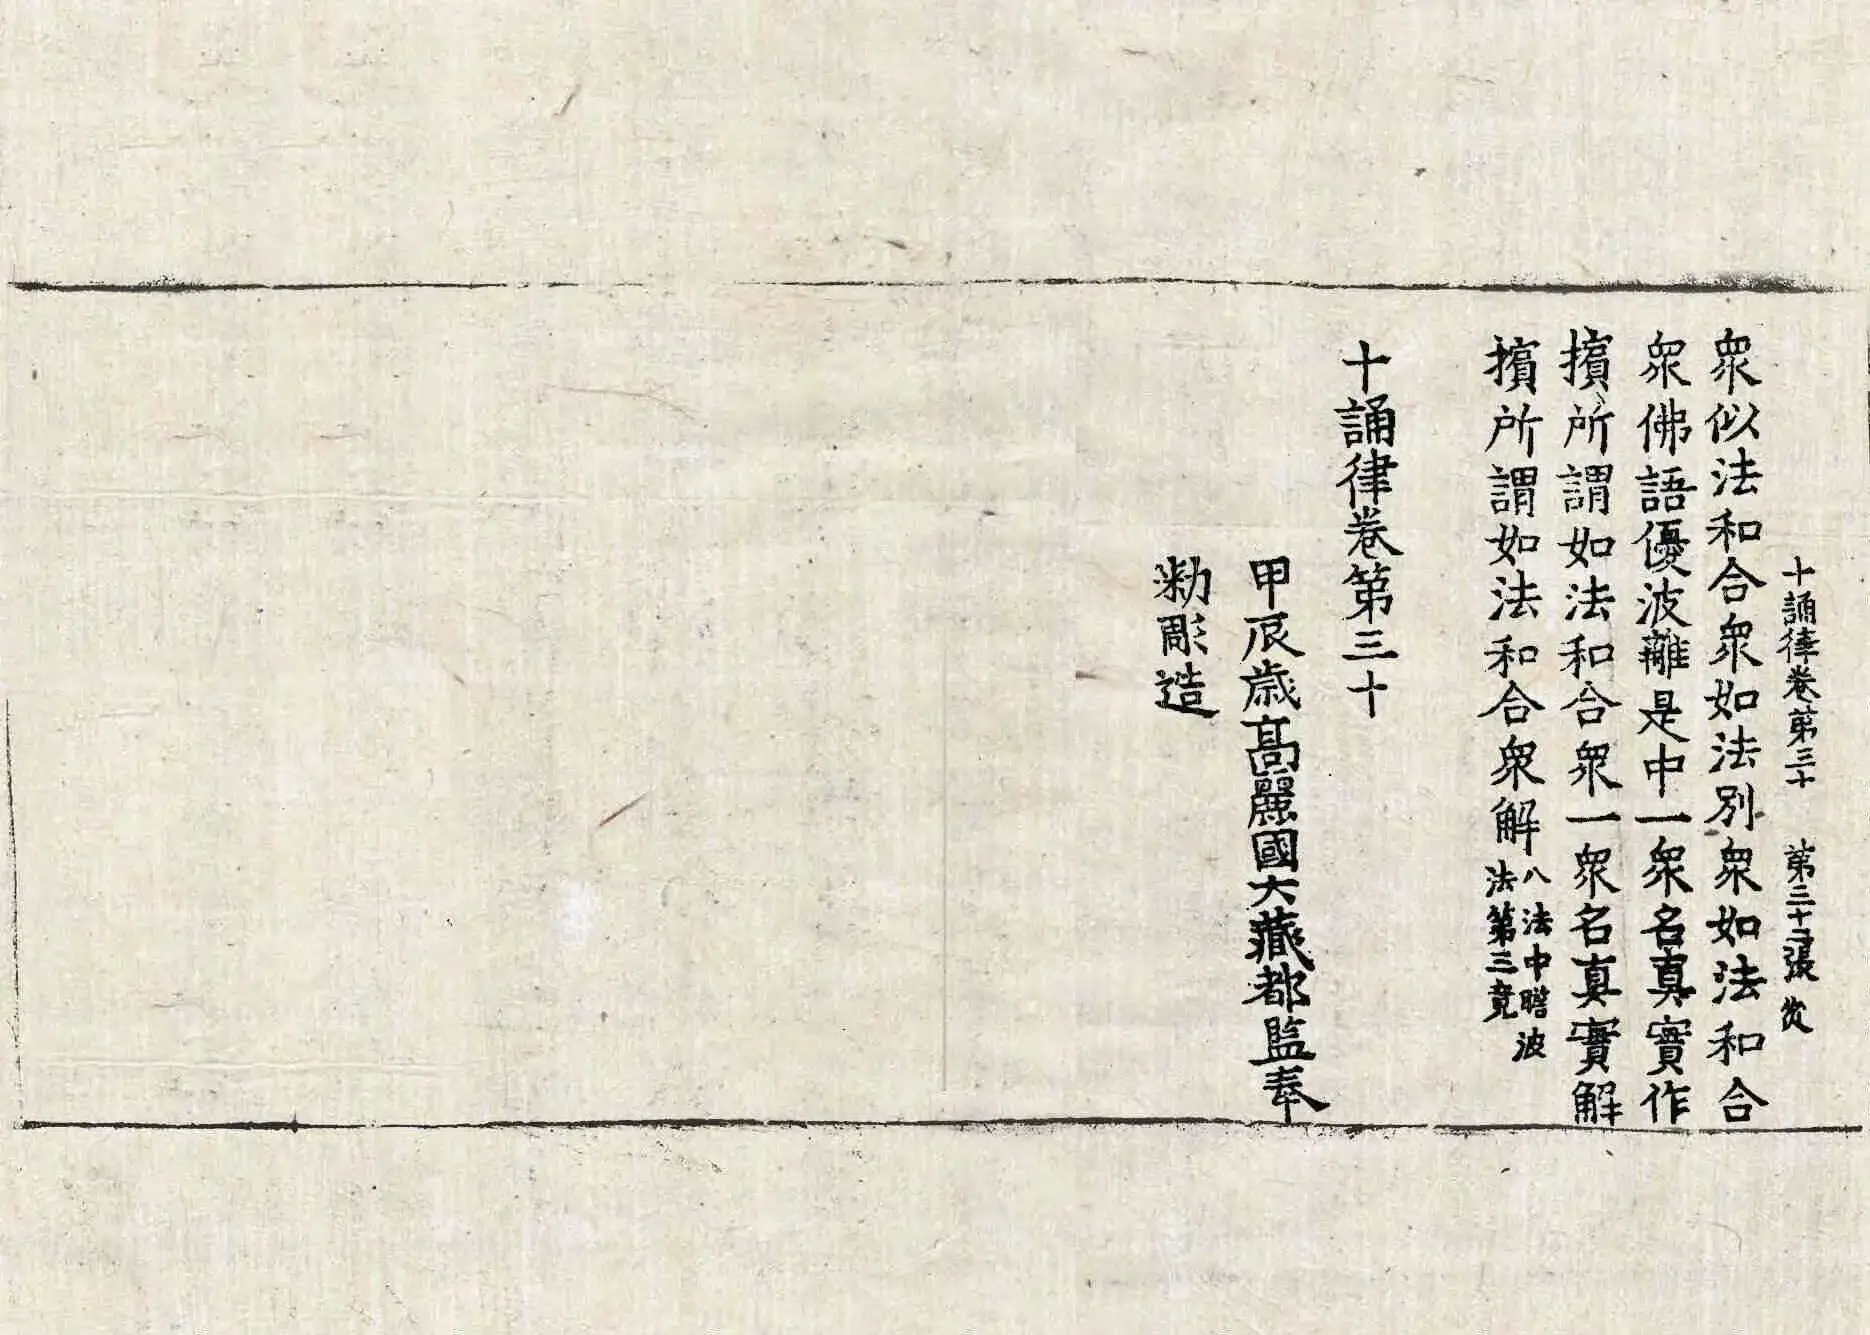 十誦律卷第三十　第三十二張　攸
衆似法和合衆如法別衆如法和合
衆佛語優波離是中一衆名真實作
擯所謂如法和合衆一衆名真實解
擯所謂如法和合衆解八法中瞻波
法第三竟
十誦律卷第三十
甲辰歳高麗國大藏都監奉
勑彫造